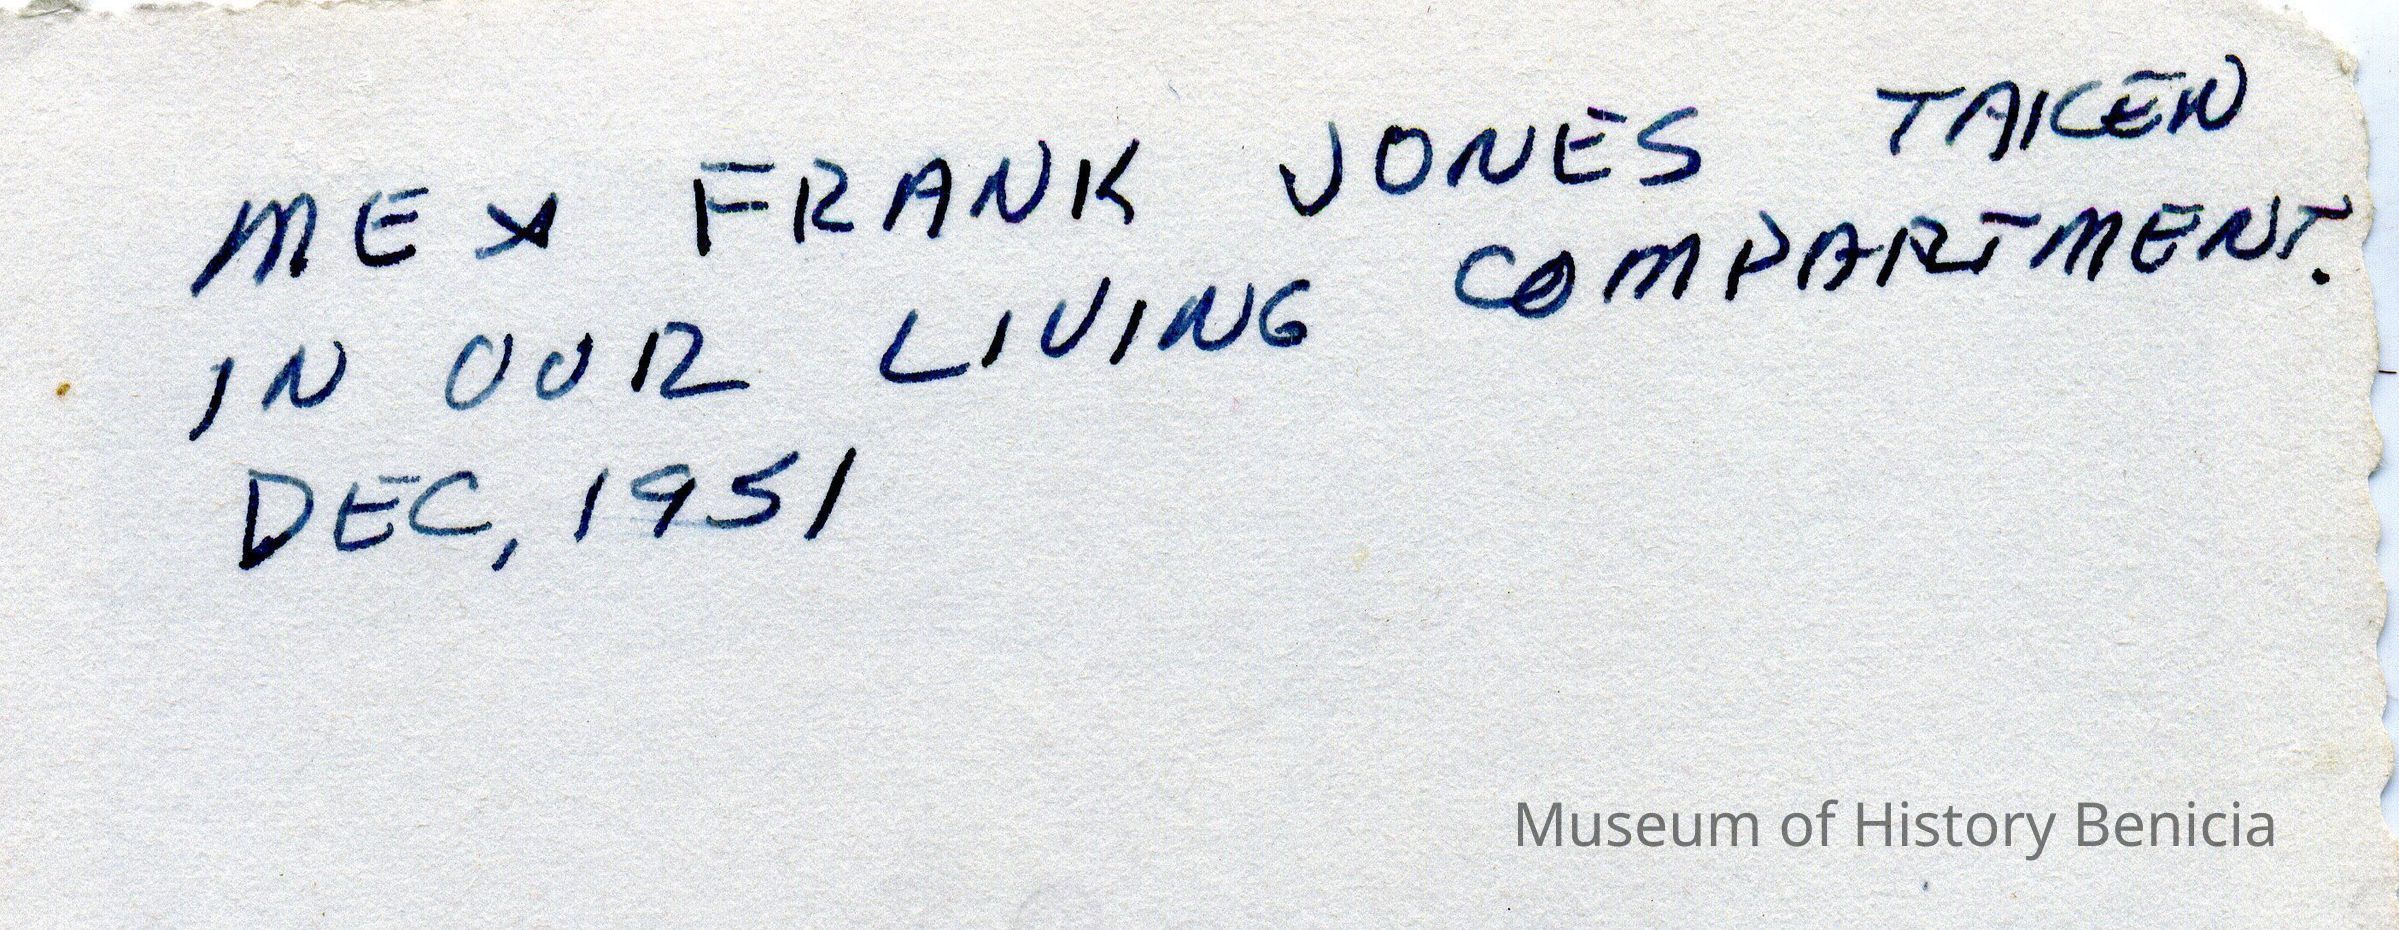 ME & FRANK JONES TAKEN
IN OUR LIVING COMPARTMENT.
DEC, 1951
Museum of History Benicia